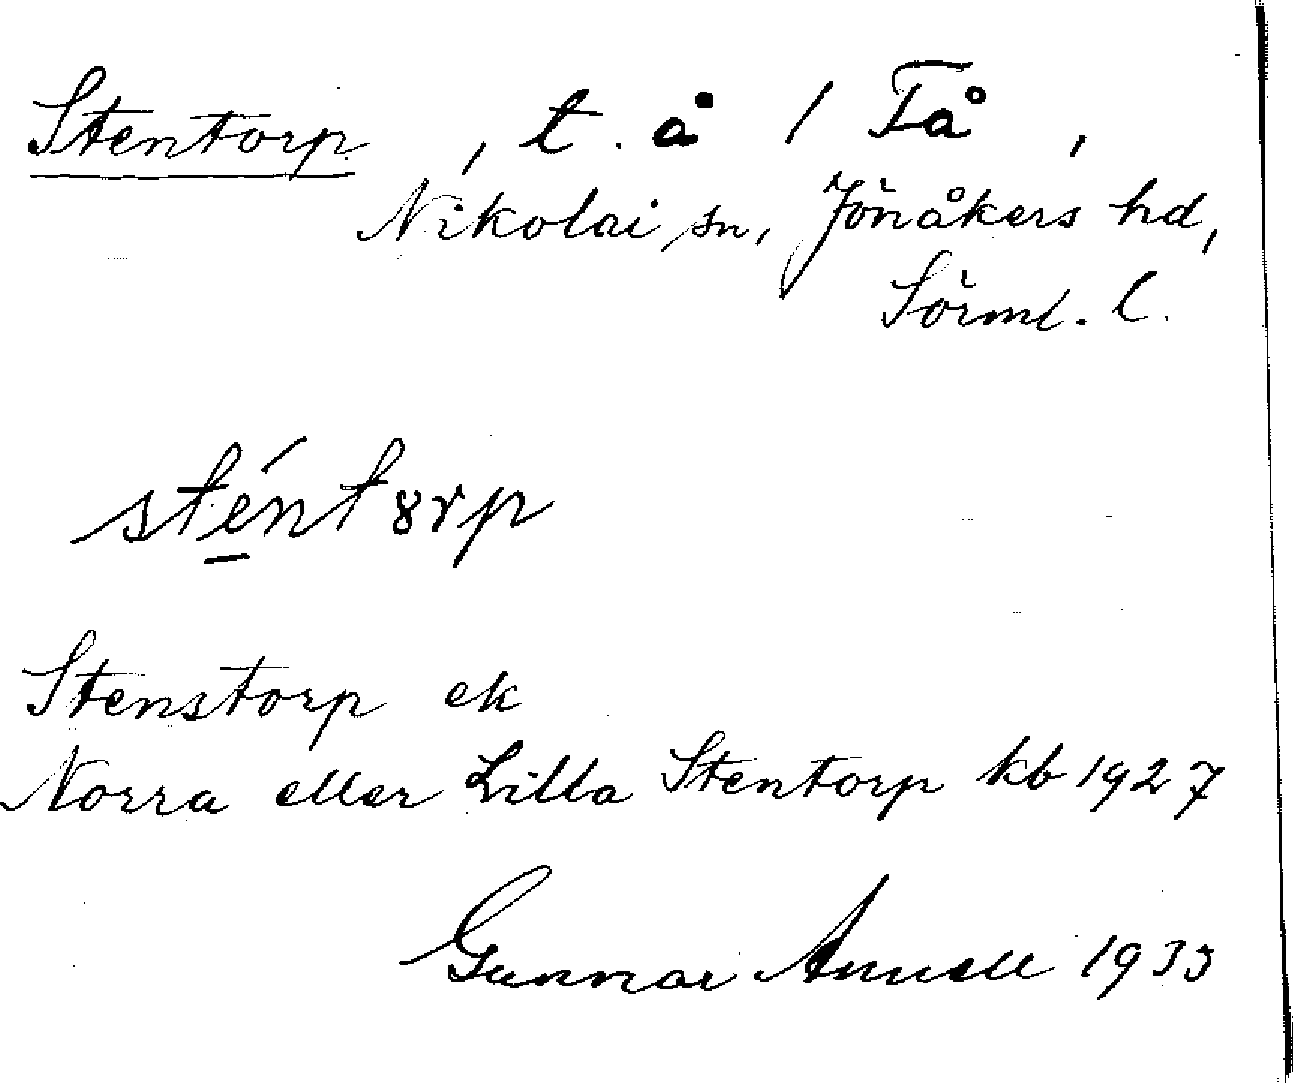 Stentorp, t. å / Tå,
Nikolai sn, Jönåkers hd,
Sörml. l.
sténtȣrp
Stenstorp ek
Norra eller Lilla Stentorp kb 1927
Gunnar Annell 1933